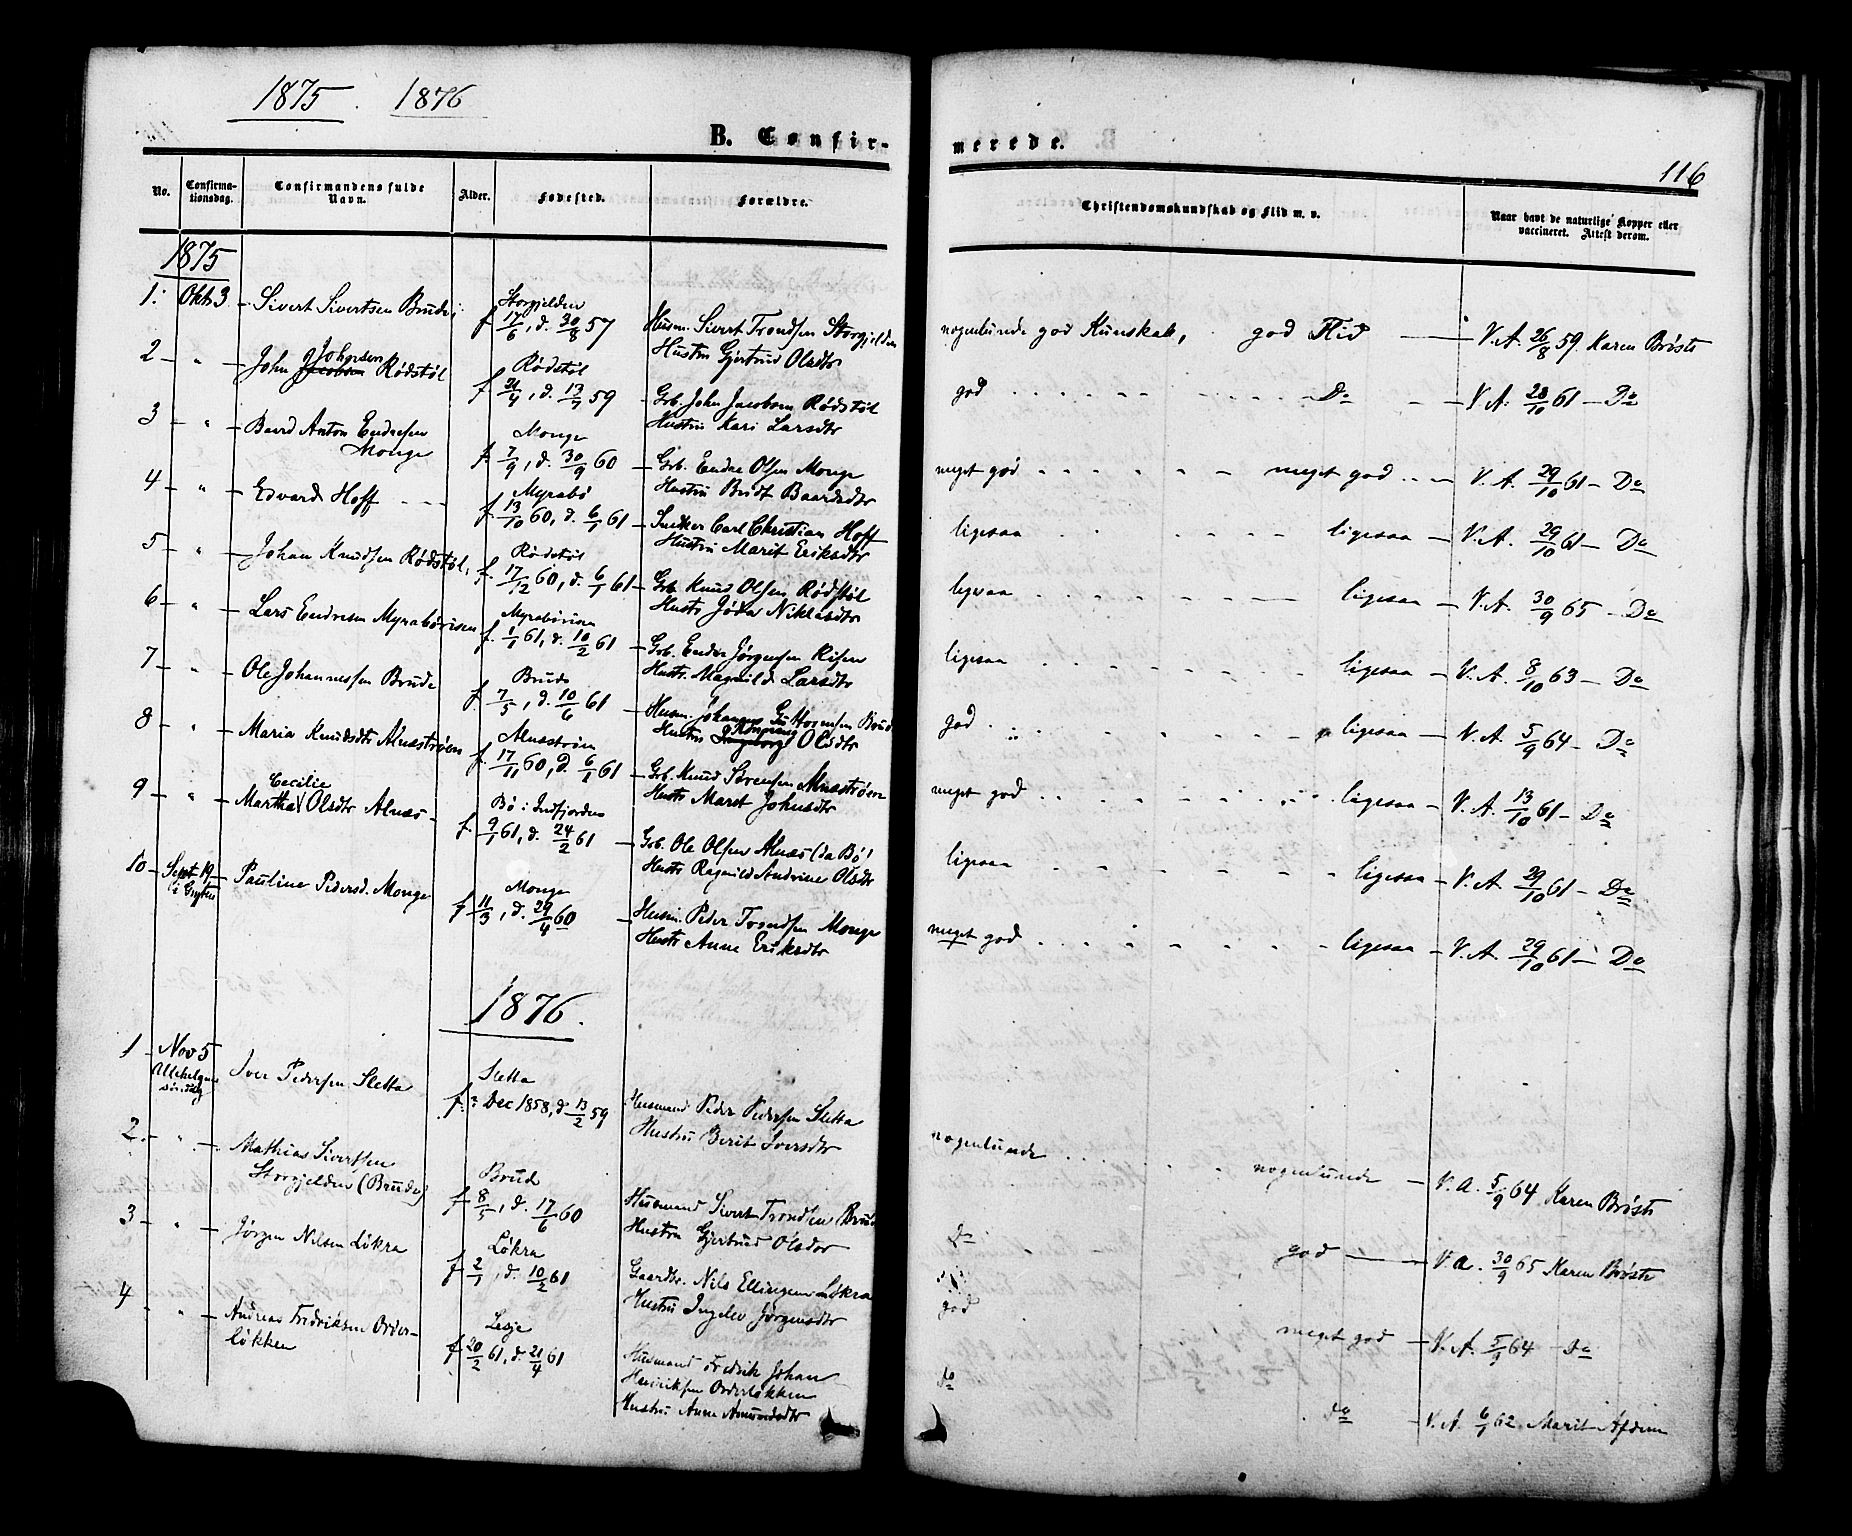 1875. 1876
B. Confir-
No. Confirma-tionsdag. Confirmandens fulde Navn. Alder. Fødested. Forældre.
1875
1. Okt 3 Sivert Sivertsen Brude Storgjelden
f. 17/6, d. 30/8 57 Husm. Sivert Trondsen Storgjelden
Hustru Gjertrud Olsdtr
2 " John Johnsen Rødstøl Rødstøl
f. 21/4, d. 13/7 59 Grb. John Jacobsen Rødstøl
Hustru Kari Larsdtr
3 " Baard Anton Endresen
Monge Monge
f. 7/9, d. 30/9 60 Grb. Endre Olsen Monge
Hustru Brit Baardsdtr
4 " Edvard Hoff Myrabø
f. 13/10 60, d. 6/1 61 Snedker Carl Christian Hoff
Hustru Marit Eriksdtr
5 " Johan Knudsen Rødstøl Rødstøl
f. 17/12 60, d. 6/1 61 Grb. Knud Olsen Rødstøl
Hustr Jøda Niklasdtr
6 " Lars Endresen Myrabørisen Myrabørisen
f. 1/1 61, d. 10/2 61 Grb. Endre Jørgensen Risen
Hustr. Magnild Larsdtr
7 " Ole Johannessen Brude Brude
f. 7/5, d. 10/6 61 Husm. Johannes Guttormsen Brude
Hustru Ingeborg Olsdtr
8 " Maria Knudsdtr Alnæstrøen Alnæstrøen
f. 17/11 60, d. 6/1 61 Grb. Knud Sørensen Alnæstrøen
Hustr Maret Johnsdtr
9 " Martha Cecilie Olsdtr Alnæs Bø i Indfjorden
f. 9/1 61, d. 24/2 61 Grb. Ole Olsen Alnæs (da Bø)
Hustr Ragnild Andrine Olsdtr
10 Sept 19
i Grytten Pauline Pedersd. Monge Monge
f. 11/3, d. 29/4 60 Husm. Peder Trondsen Monge
Hustr Anne Eriksdtr
1876.
1 Nov 5
Allehelgens
søndag Iver Pedersen Sletta Sletta
f. 3 Dec 1858, d. 13/2 59 Husmand Peder Pedersen Sletta
Hustru Berit Iversdtr
2. " Mathias Sivertsen
Storgjelden (Brude) Brud
f. 8/5, d. 17/6 60 Husmand Sivert Trondsen Brud
Hustru Gjertrud Olsdtr
3 " Jørgen Nilsen Løkra Løkra
f. 2/1, d. 10/2 61 Gaardbr. Nils Ellingsen Løkra
Hustru Ingelev Jørgensdtr
4 " Andreas Fredriksen Order-
løkken Lesje
f. 20/2 61, d. 21/4 61 Husmand Fredrik Johan
Henriksen Orderløkken
Hustru Anne Amundsdtr
merede.
116
Christendomskundskab og Flid m. v. Naar havt de naturlige Kopper eller vaccineret. Attest derom.
nogenlunde god Kunskab, god Flid V. A. 26/8 59 Karen Brøste
god Do V. A. 28/10 61 Do
meget god meget god V. A. 29/10 61 Do
ligesaa ligesaa V. A. 29/10 61 Do
ligesaa ligesaa V. A. 30/9 65 Do
ligesaa ligesaa V. A. 8/10 63 Do
god ligesaa V. A. 5/9 64 Do
meget god ligesaa V. A. 13/10 61 Do
ligesaa ligesaa V. A. 29/10 61 Do
meget god ligesaa V. A. 29/10 61 Do
nogenlunde nogenlunde V. a. 5/9 64 Karen Brøste
Do god V. a. 30/9 65 Karen Brøste
god meget god V. A. 5/9 64 Do
do do V. A. 6/1 62 Marit Afdem